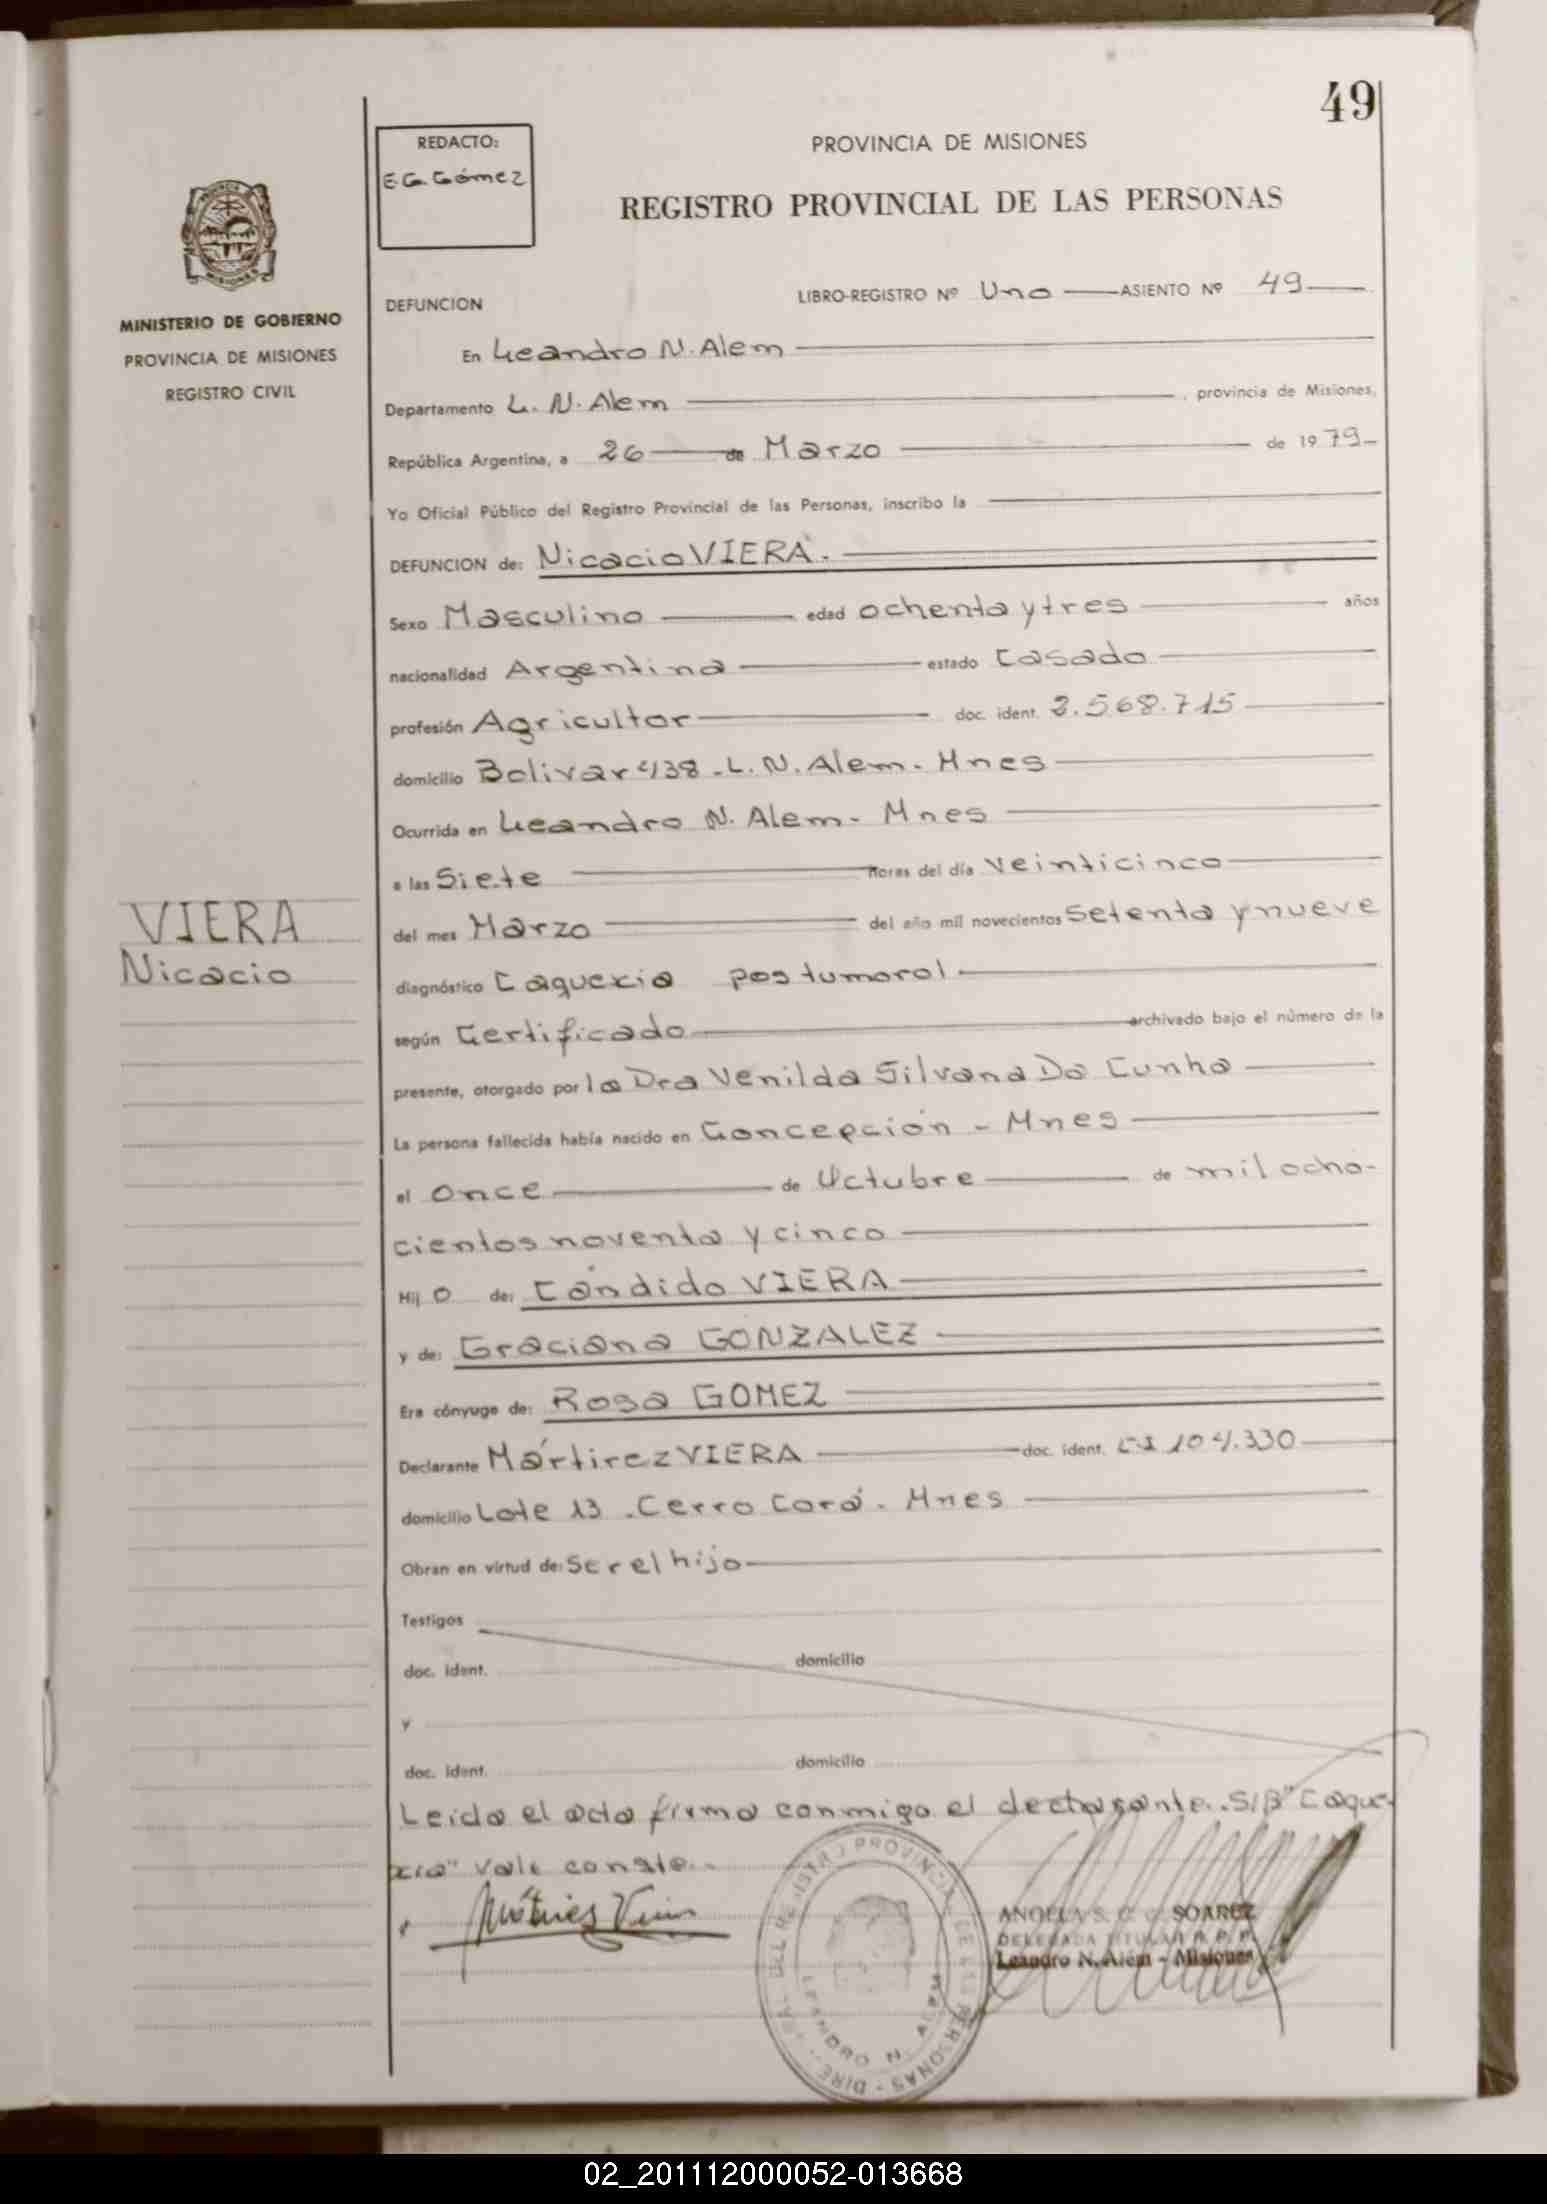 49
REDACTO:
E.G. Gómez
PROVINCIA DE MISIONES
REGISTRO PROVINCIAL DE LAS PERSONAS
MISIONES
MINISTERIO DE GOBIERNO
PROVINCIA DE MISIONES
REGISTRO CIVIL
DEFUNCION LIBRO-REGISTRO Nº Uno ASIENTO Nº 49
En Leandro N. Alem
Departamento L. N. Alem , provincia de Misiones,
República Argentina, a 26 de Marzo de 1979
Yo Oficial Público del Registro Provincial de las Personas, inscribo la
DEFUNCION de: Nicacio VIERA.
Sexo Masculino edad ochenta y tres años
nacionalidad Argentina estado Casado
profesión Agricultor doc. ident. 2.568.715
domicilio Bolivar 438 - L. N. Alem - Mnes
Ocurrida en Leandro N. Alem - Mnes
a las Siete horas del día veinticinco
del mes Marzo del año mil novecientos setenta y nueve
VIERA
Nicacio
diagnóstico Caquexia postumoral
según Certificado archivado bajo el número de la
presente, otorgado por la Dra Venilda Silvana Da Cunha
La persona fallecida había nacido en Concepción - Mnes
el once de Octubre de mil ocho-
cientos noventa y cinco
Hij o de: Cándido VIERA
y de: Graciana GONZALEZ
Era cónyuge de: Rosa GOMEZ
Declarante Mártirez VIERA doc. ident. C.I 104.330
domicilio Lote 13 - Cerro Corá - Mnes
Obran en virtud de: Ser el hijo
Testigos
doc. ident. domicilio
y
doc. ident. domicilio
Leída el acta firma conmigo el declarante. S/B "Caque-
xia" Vale conste.
SOAREZ
DELEGADA TITULAR R. P. P.
Leandro N. Alem - Misiones
REGISTRO PROVINCIAL DE LAS PERSONAS
LEANDRO N. ALEM
02_201112000052-013668